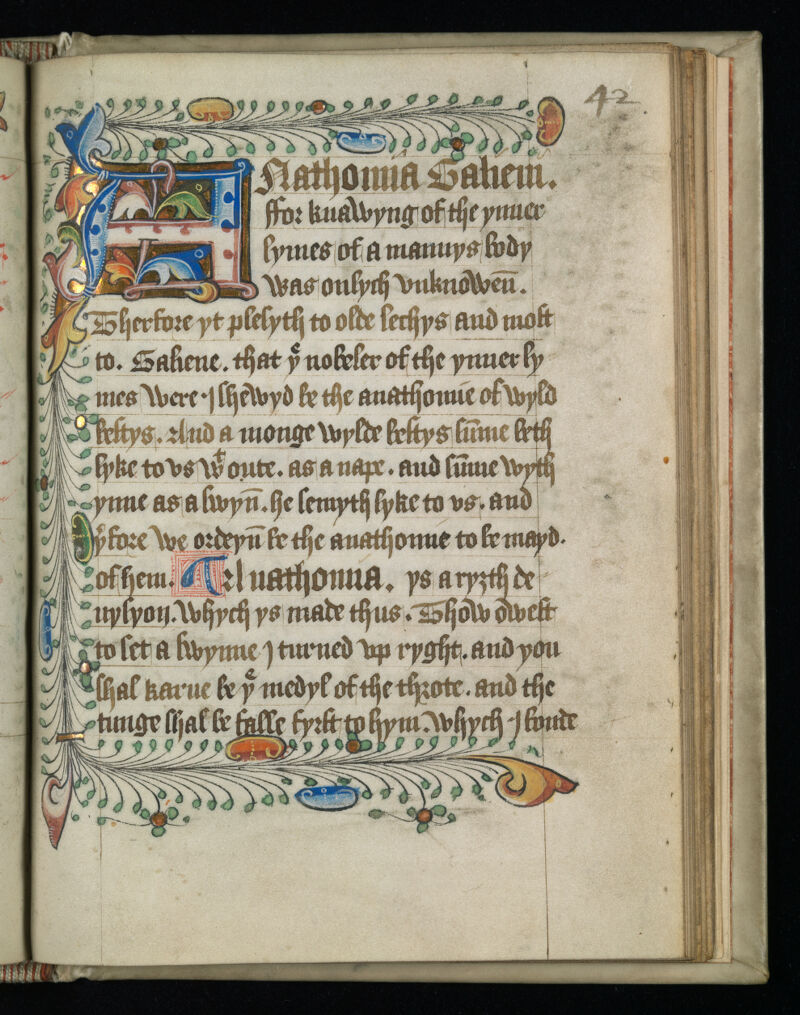 42
ANathomia Galieni.
ffor knaWyng of the ynner
lymes of a mannys body
Was onlych vnknoWen̄.
Therfore yt plesyth to olde lechys and most
to. Galiene. that yͤ nobeler of the ynner ly
mes Were I sheWyd be the anathomie of Wyld
bestys. And a monge Wylde bestys su̅me beth
lyke to vs Wᵗ oute. as a nape. and su̅me Wyth
ynne as a sWyn̄. he semyth lyke to vs. and
yͤfore We ordeyn̄ be the anathomie to be mayd.
of hem. Anathomia. ys a ryȝth de
uysyon. Whych ys made thus. ThoW oWest
to set a sWynne I turned vp ryght. and you
shal karue be yͤ medyl of the throte. and the
tunge shal be falle fyrst to hym. Whych I bounde